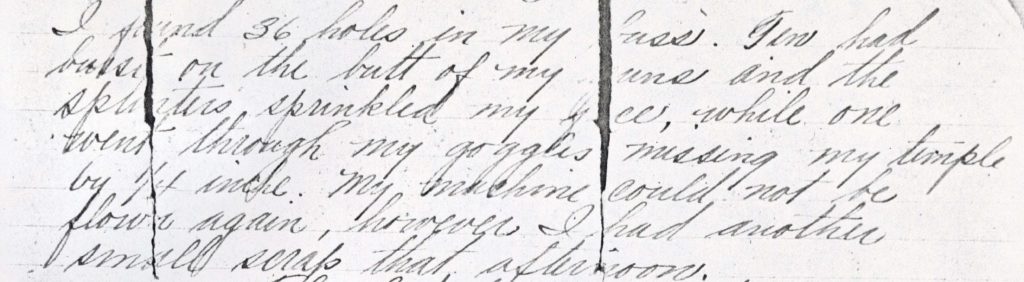 I found 36 holes in my buss. Ten had
burst on the butt of my guns and the
splinters sprinkled my face, while one
went through my goggles missing my temple
by 1/4 inche. My machine could not be
flown again, however I had another
small scrap that afternoon.